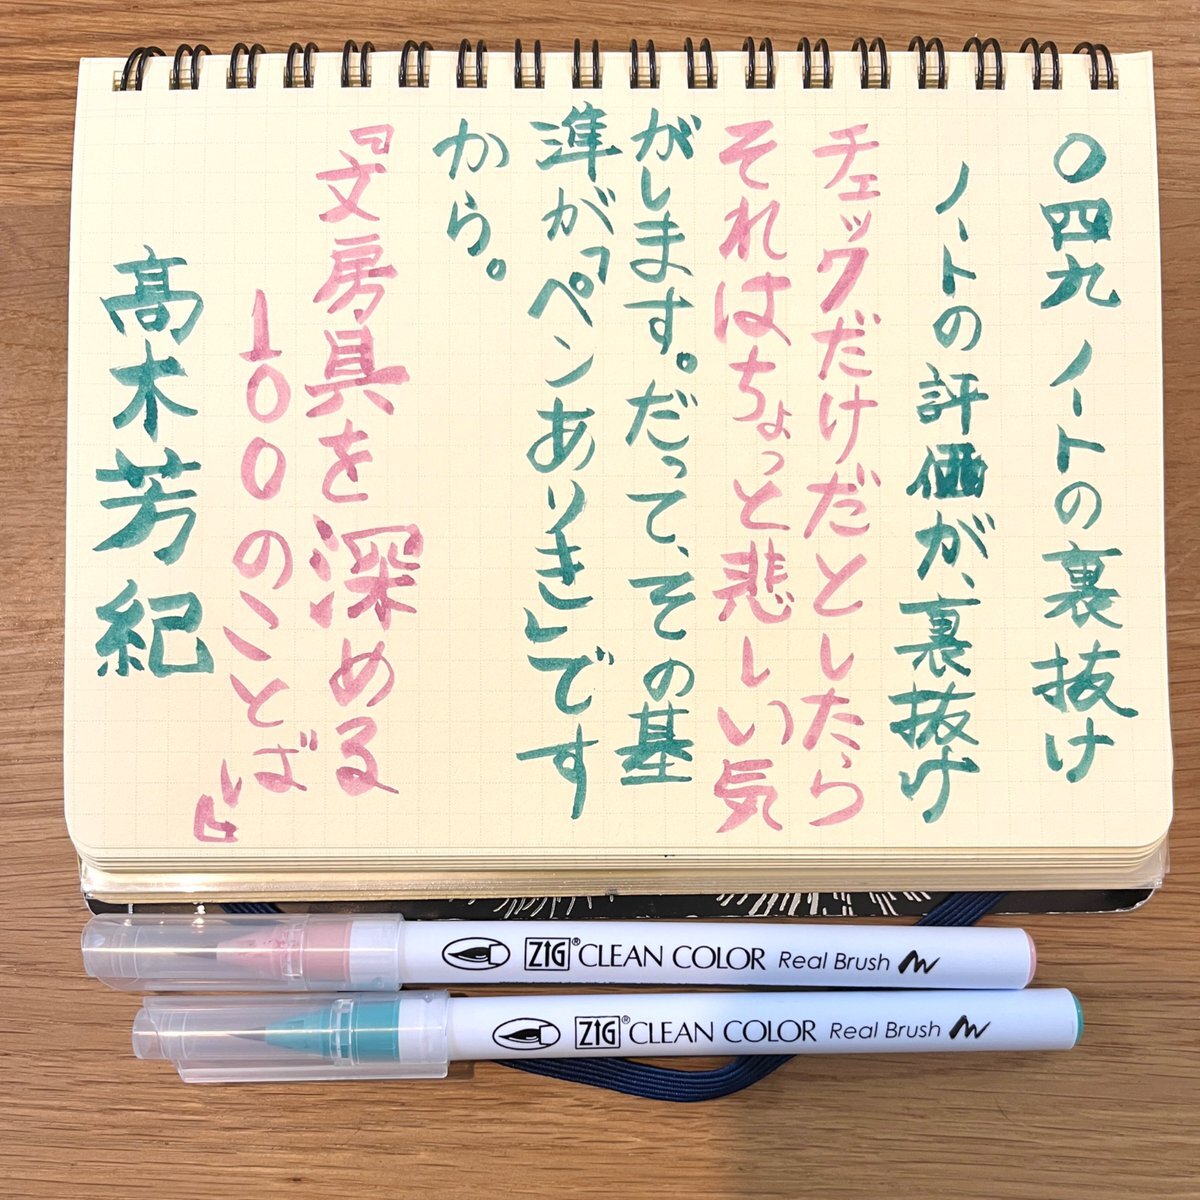 〇四九 ノートの裏抜け
ノートの評価が、裏抜け
チェックだけだとしたら
それはちょっと悲しい気
がします。だって、その基
準が「ペンありき」です
から。
『文房具を深める
100のことば』
高木芳紀
ZIG® CLEAN COLOR Real Brush
ZIG® CLEAN COLOR Real Brush